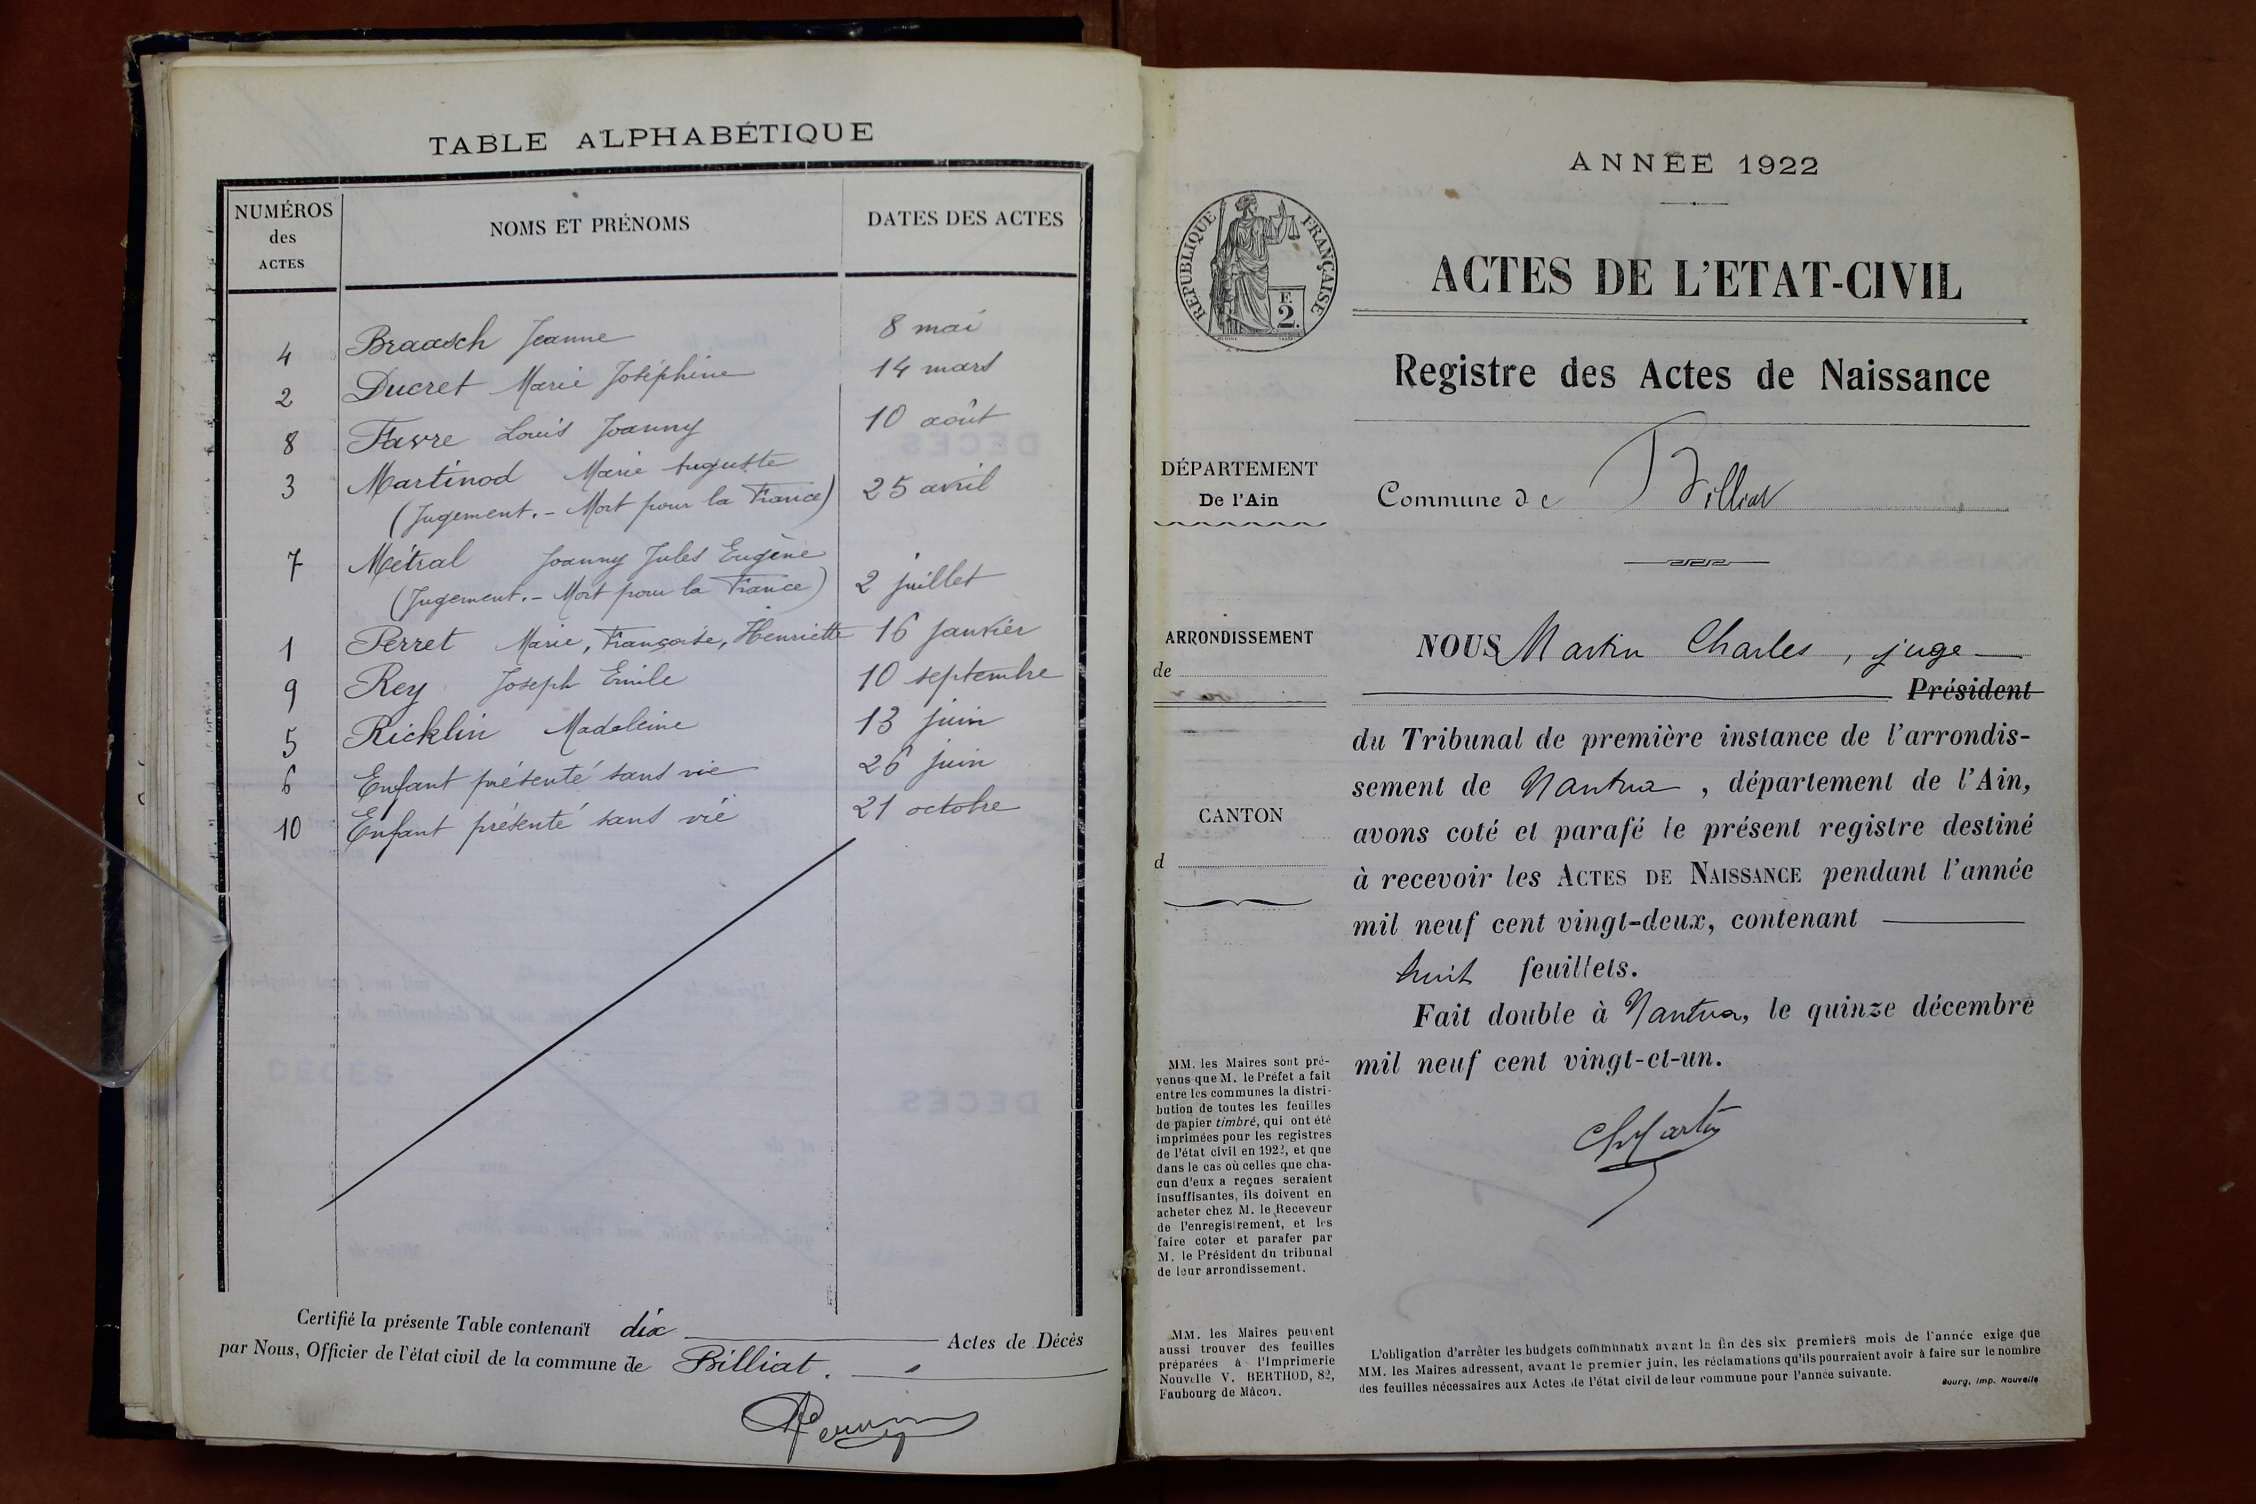 TABLE ALPHABÉTIQUE
NUMÉROS des ACTES
NOMS ET PRÉNOMS
DATES DES ACTES
4 Braasch Jeanne 8 mai
2 Ducret Marie Joséphine 14 mars
8 Favre Louis Joanny 10 août
3 Martinod Marie Auguste
(Jugement. - Mort pour la France) 25 avril
7 Métral Joanny Jules Eugène
(Jugement. - Mort pour la France) 2 juillet
1 Perret Marie, Françoise, Henriette 16 janvier
9 Rey Joseph Emile 10 septembre
5 Ricklin Madeleine 13 juin
6 Enfant présenté sans vie 26 juin
10 Enfant présenté sans vie 21 octobre
Certifié la présente Table contenant dix Actes de Décès
par Nous, Officier de l'état civil de la commune de Billiat.
ANNÉE 1922
RÉPUBLIQUE FRANÇAISE
F.
2.
ACTES DE L'ETAT-CIVIL
Registre des Actes de Naissance
DÉPARTEMENT
De l'Ain
Commune de Billiat
ARRONDISSEMENT
de
CANTON
d
NOUS Martin Charles, juge
Président
du Tribunal de première instance de l'arrondis-
sement de Nantua, département de l'Ain,
avons coté et parafé le présent registre destiné
à recevoir les ACTES DE NAISSANCE pendant l'année
mil neuf cent vingt-deux, contenant
huit feuillets.
Fait double à Nantua, le quinze décembre
mil neuf cent vingt-et-un.
Ch Martin
MM. les Maires sont pré-
venus que M. le Préfet a fait
entre les communes la distri-
bution de toutes les feuilles
de papier timbré, qui ont été
imprimées pour les registres
de l'état civil en 1922, et que
dans le cas où celles que cha-
cun d'eux a reçues seraient
insuffisantes, ils doivent en
acheter chez M. le Receveur
de l'enregistrement, et les
faire coter et parafer par
M. le Président du tribunal
de leur arrondissement.
MM. les Maires peuvent
aussi trouver des feuilles
préparées à l'Imprimerie
Nouvelle V. BERTHOD, 82,
Faubourg de Mâcon.
L'obligation d'arrêter les budgets communaux avant la fin des six premiers mois de l'année exige que
MM. les Maires adressent, avant le premier juin, les réclamations qu'ils pourraient avoir à faire sur le nombre
des feuilles nécessaires aux Actes de l'état civil de leur commune pour l'année suivante.
Bourg, Imp. Nouvelle